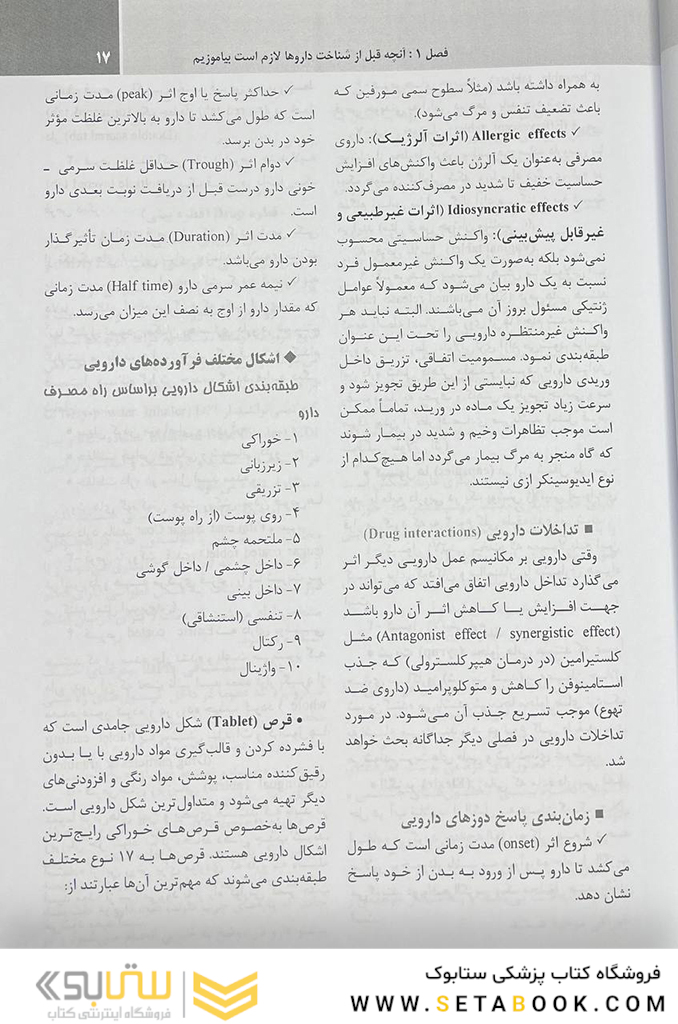 فصل ۱ : آنچه قبل از شناخت داروها لازم است بیاموزیم
۱۷
به همراه داشته باشد (مثلاً سطوح سمی مورفین که
باعث تضعیف تنفس و مرگ می‌شود).
✓ Allergic effects (اثرات آلرژیک): داروی
مصرفی به‌عنوان یک آلرژن باعث واکنش‌های افزایش
حساسیت خفیف تا شدید در مصرف‌کننده می‌گردد.
✓ Idiosyncratic effects (اثرات غیرطبیعی و
غیرقابل پیش‌بینی): واکنش حساسیتی محسوب
نمی‌شود بلکه به‌صورت یک واکنش غیرمعمول فرد
نسبت به یک دارو بیان می‌شود که معمولاً عوامل
ژنتیکی مسئول بروز آن می‌باشند. البته نباید هر
واکنش غیرمنتظره دارویی را تحت این عنوان
طبقه‌بندی نمود. مسمومیت اتفاقی، تزریق داخل
وریدی دارویی که نبایستی از این طریق تجویز شود و
سرعت زیاد تجویز یک ماده در ورید، تماماً ممکن
است موجب تظاهرات وخیم و شدید در بیمار شوند
که گاه منجر به مرگ بیمار می‌گردد اما هیچ‌کدام از
نوع ایدیوسینکر ازی نیستند.
■ تداخلات دارویی (Drug interactions)
وقتی دارویی بر مکانیسم عمل دارویی دیگر اثر
می‌گذارد تداخل دارویی اتفاق می‌افتد که می‌تواند در
جهت افزایش یا کاهش اثر آن دارو باشد
(Antagonist effect / synergistic effect) مثل
کلستیرامین (در درمان هیپرکلسترولی) که جذب
استامینوفن را کاهش و متوکلوپرامید (داروی ضد
تهوع) موجب تسریع جذب آن می‌شود. در مورد
تداخلات دارویی در فصلی دیگر جداگانه بحث خواهد
شد.
■ زمان‌بندی پاسخ دوزهای دارویی
✓ شروع اثر (onset) مدت زمانی است که طول
می‌کشد تا دارو پس از ورود به بدن از خود پاسخ
نشان دهد.
✓ حداکثر پاسخ یا اوج اثر (peak) مدت زمانی
است که طول می‌کشد تا دارو به بالاترین غلظت مؤثر
خود در بدن برسد.
✓ دوام اثر (Trough) حداقل غلظت سرمی -
خونی دارو درست قبل از دریافت نوبت بعدی دارو
است.
✓ مدت اثر (Duration) مدت زمان تأثیرگذار
بودن دارو می‌باشد.
✓ نیمه عمر سرمی دارو (Half time) مدت زمانی
که مقدار دارو از اوج به نصف این میزان می‌رسد.
◆ اشکال مختلف فرآورده‌های دارویی
طبقه‌بندی اشکال دارویی براساس راه مصرف
دارو
۱- خوراکی
۲- زیرزبانی
۳- تزریقی
۴- روی پوست (از راه پوست)
۵- ملتحمه چشم
۶- داخل چشمی / داخل گوشی
۷- داخل بینی
۸- تنفسی (استنشاقی)
۹- رکتال
۱۰- واژینال
• قرص (Tablet) شکل دارویی جامدی است که
با فشرده کردن و قالب‌گیری مواد دارویی با یا بدون
رقیق‌کننده مناسب، پوشش، مواد رنگی و افزودنی‌های
دیگر تهیه می‌شود و متداول‌ترین شکل دارویی است.
قرص‌ها به‌خصوص قرص‌های خوراکی رایج‌ترین
اشکال دارویی هستند. قرص‌ها به ۱۷ نوع مختلف
طبقه‌بندی می‌شوند که مهم‌ترین آن‌ها عبارتند از:
فروشگاه کتاب پزشکی ستابوک
WWW.SETABOOK.COM
ستابوک
فروشگاه اینترنتی کتاب